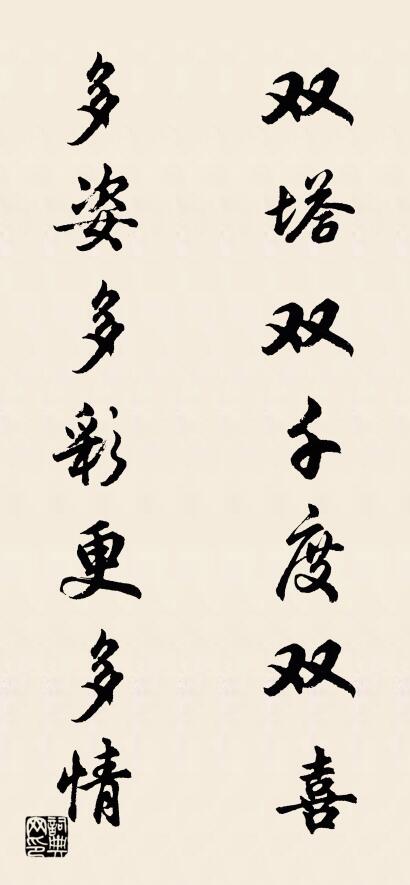 双塔双千度双喜
多姿多彩更多情
詞典网印